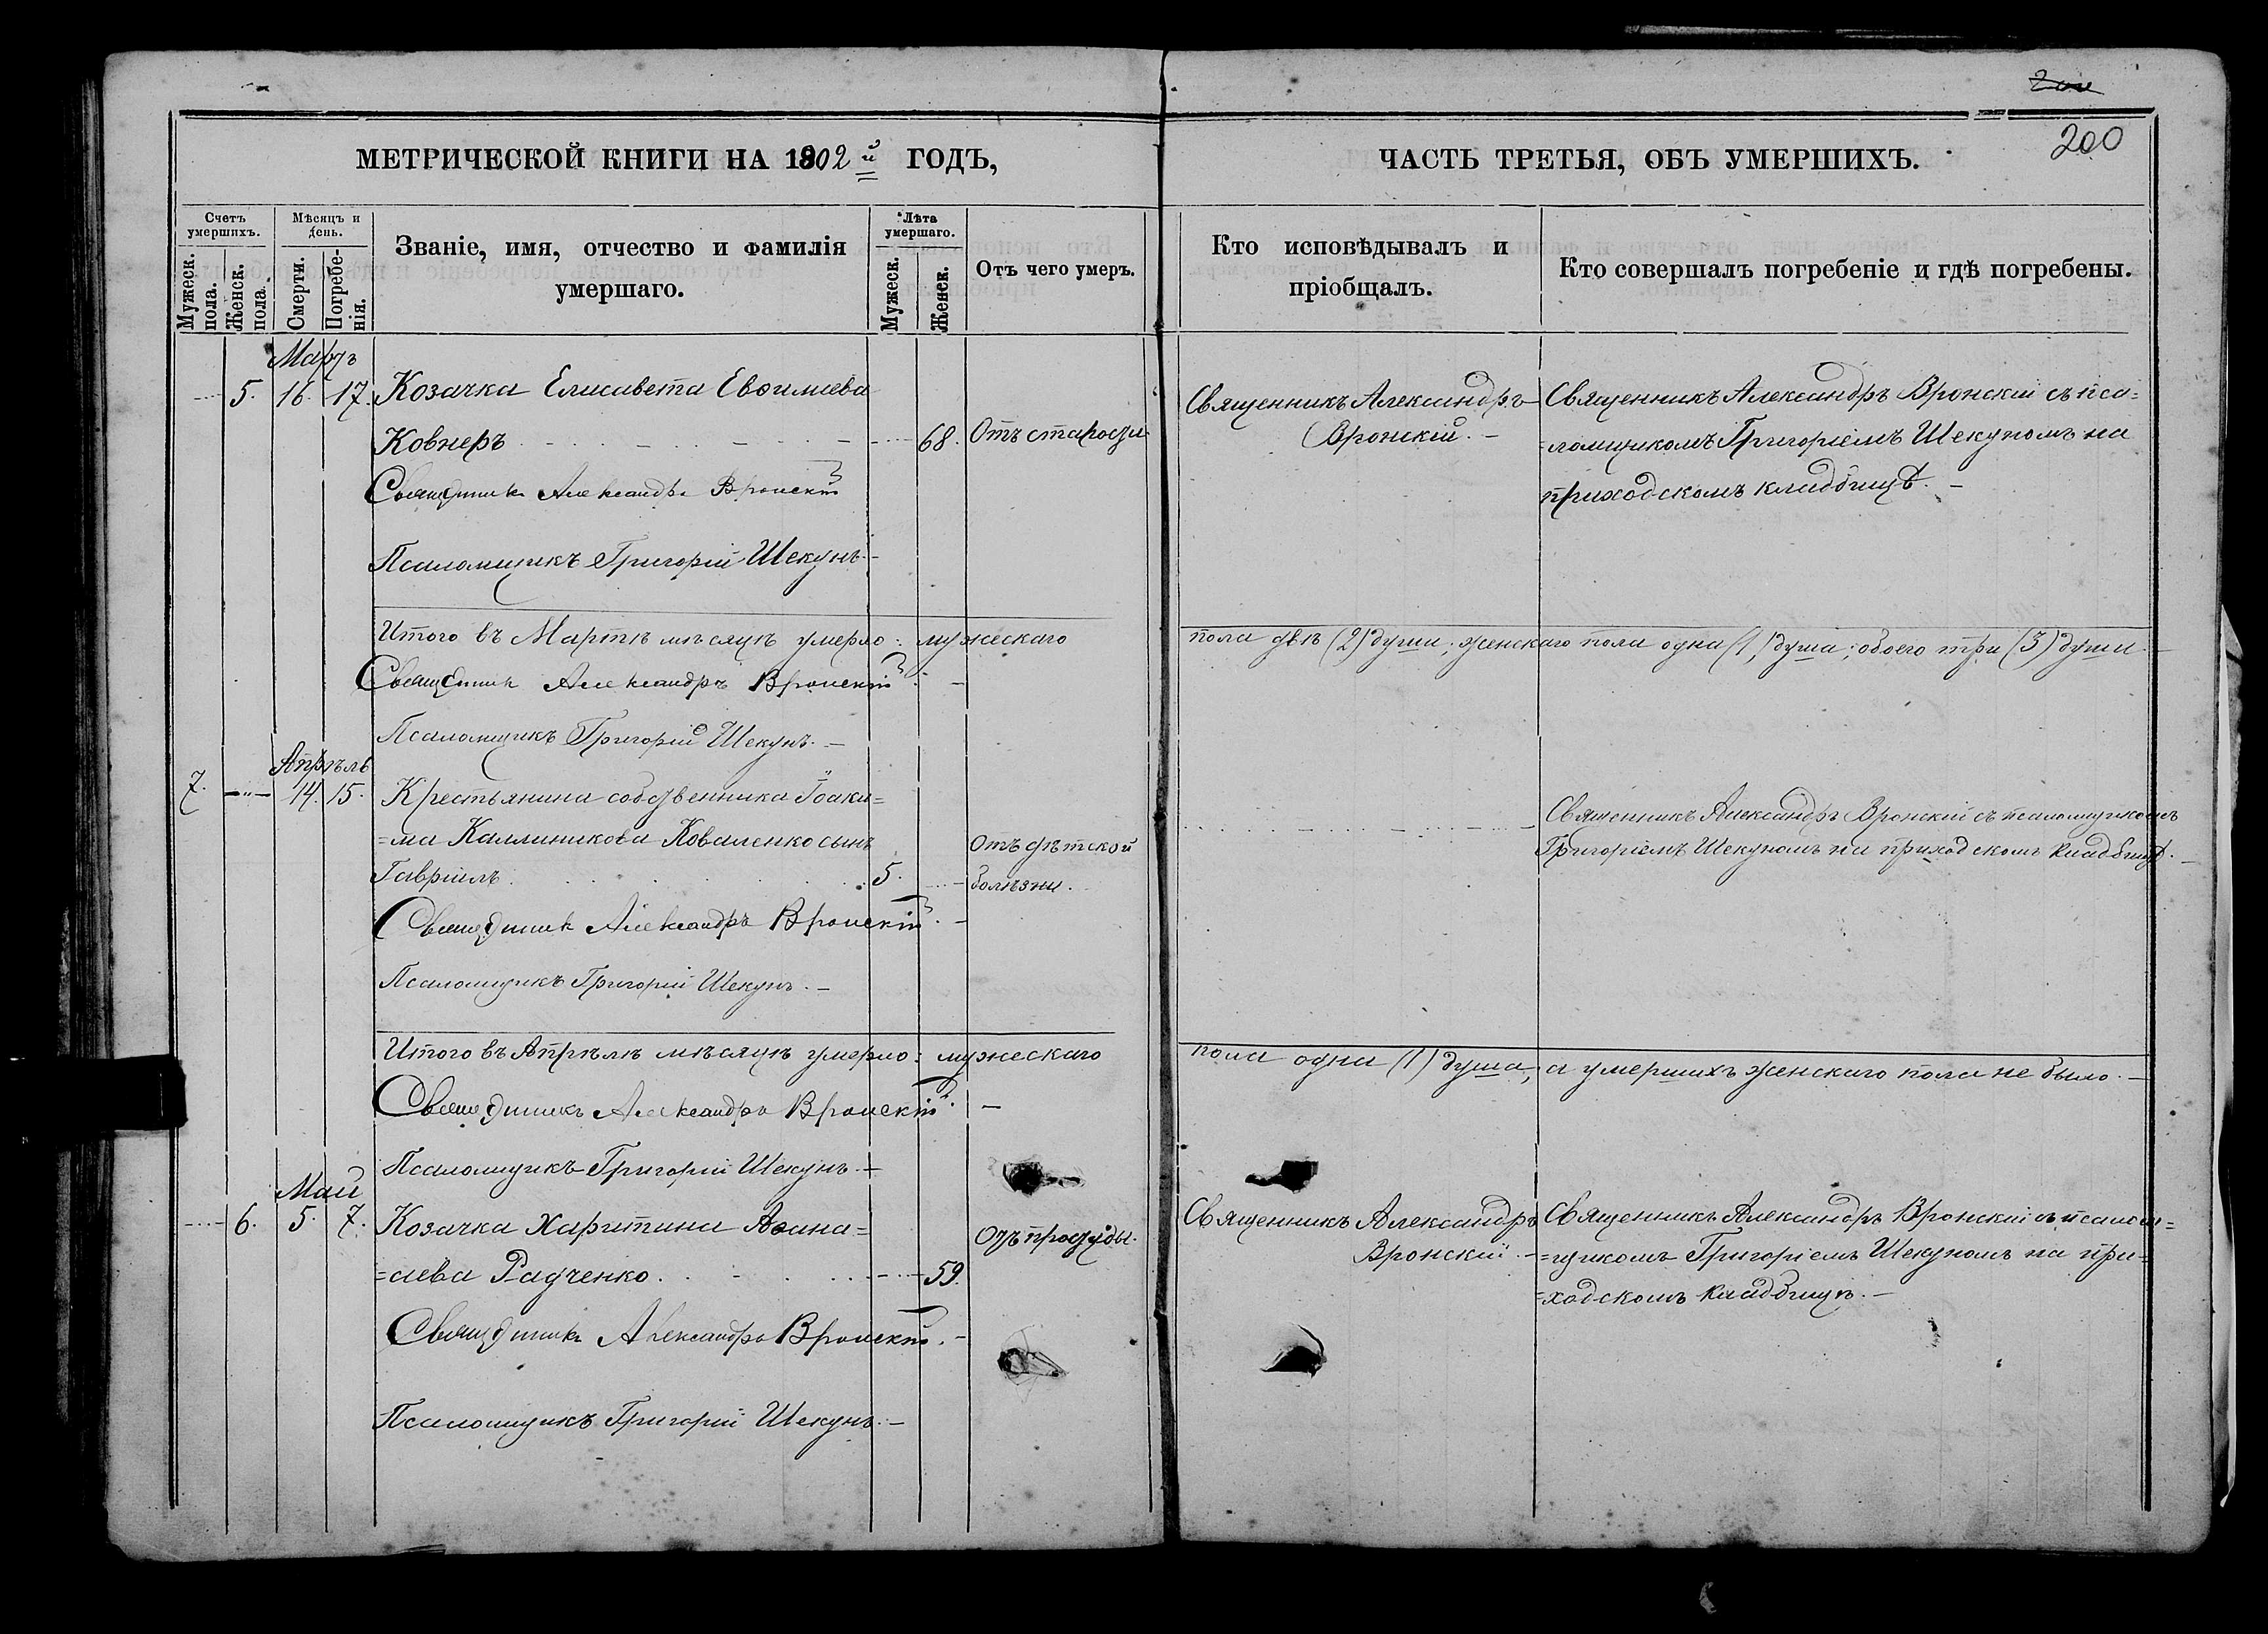 200
МЕТРИЧЕСКОЙ КНИГИ НА 1902й ГОДЪ,
ЧАСТЬ ТРЕТЬЯ, ОБЪ УМЕРШИХЪ.
Счетъ умершихъ.
Мужеск. пола.
Женск. пола.
Мѣсяцъ и день.
Смерти.
Погребенія.
Званіе, имя, отчество и фамилія
умершаго.
Лѣта умершаго.
Мужеск.
Женск.
Отъ чего умеръ.
Кто исповѣдывалъ и
пріобщалъ.
Кто совершалъ погребеніе и гдѣ погребены.
Мартъ
5. 16. 17. Козачка Елисавета Евѳиміева
Ковнеръ 68. Отъ старости
Священникъ Александръ Вронскій
Псаломщикъ Григорій Шекунъ.
Священникъ Александръ
Вронскій.
Священникъ Александръ Вронскій съ пса=
=ломщикомъ Григоріемъ Шекуномъ на
приходскомъ кладбищѣ.
Итого въ Мартѣ мѣсяцѣ умерло: мужескаго
пола двѣ (2) души; женскаго пола одна (1) душа; обоего три (3) души.
Священникъ Александръ Вронскій.
Псаломщикъ Григорій Шекунъ.
Апрѣль
7. 14. 15. Крестьянина собственника Іоаки=
=ма Каллиникова Коваленко сынъ
Гавріилъ 5.
Отъ дѣтской
болѣзни.
Священникъ Александръ Вронскій.
Псаломщикъ Григорій Шекунъ.
Священникъ Александръ Вронскій съ псаломщикомъ
Григоріемъ Шекуномъ на приходскомъ кладбищѣ.
Итого въ Апрѣлѣ мѣсяцѣ умерло: мужескаго
пола одна (1) душа, а умершихъ женскаго пола не было.
Священникъ Александръ Вронскій.
Псаломщикъ Григорій Шекунъ.
Май
6. 5. 7. Козачка Харитина Аѳана=
=сіева Радченко. 59.
Отъ простуды.
Священникъ Александръ Вронскій.
Псаломщикъ Григорій Шекунъ.
Священникъ Александръ
Вронскій.
Священникъ Александръ Вронскій съ псалом=
=щикомъ Григоріемъ Шекуномъ на при=
=ходскомъ кладбищѣ.